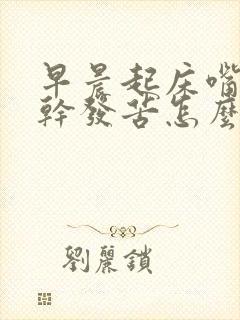 早晨起床嘴
幹發苦怎麼
劉麗鎖